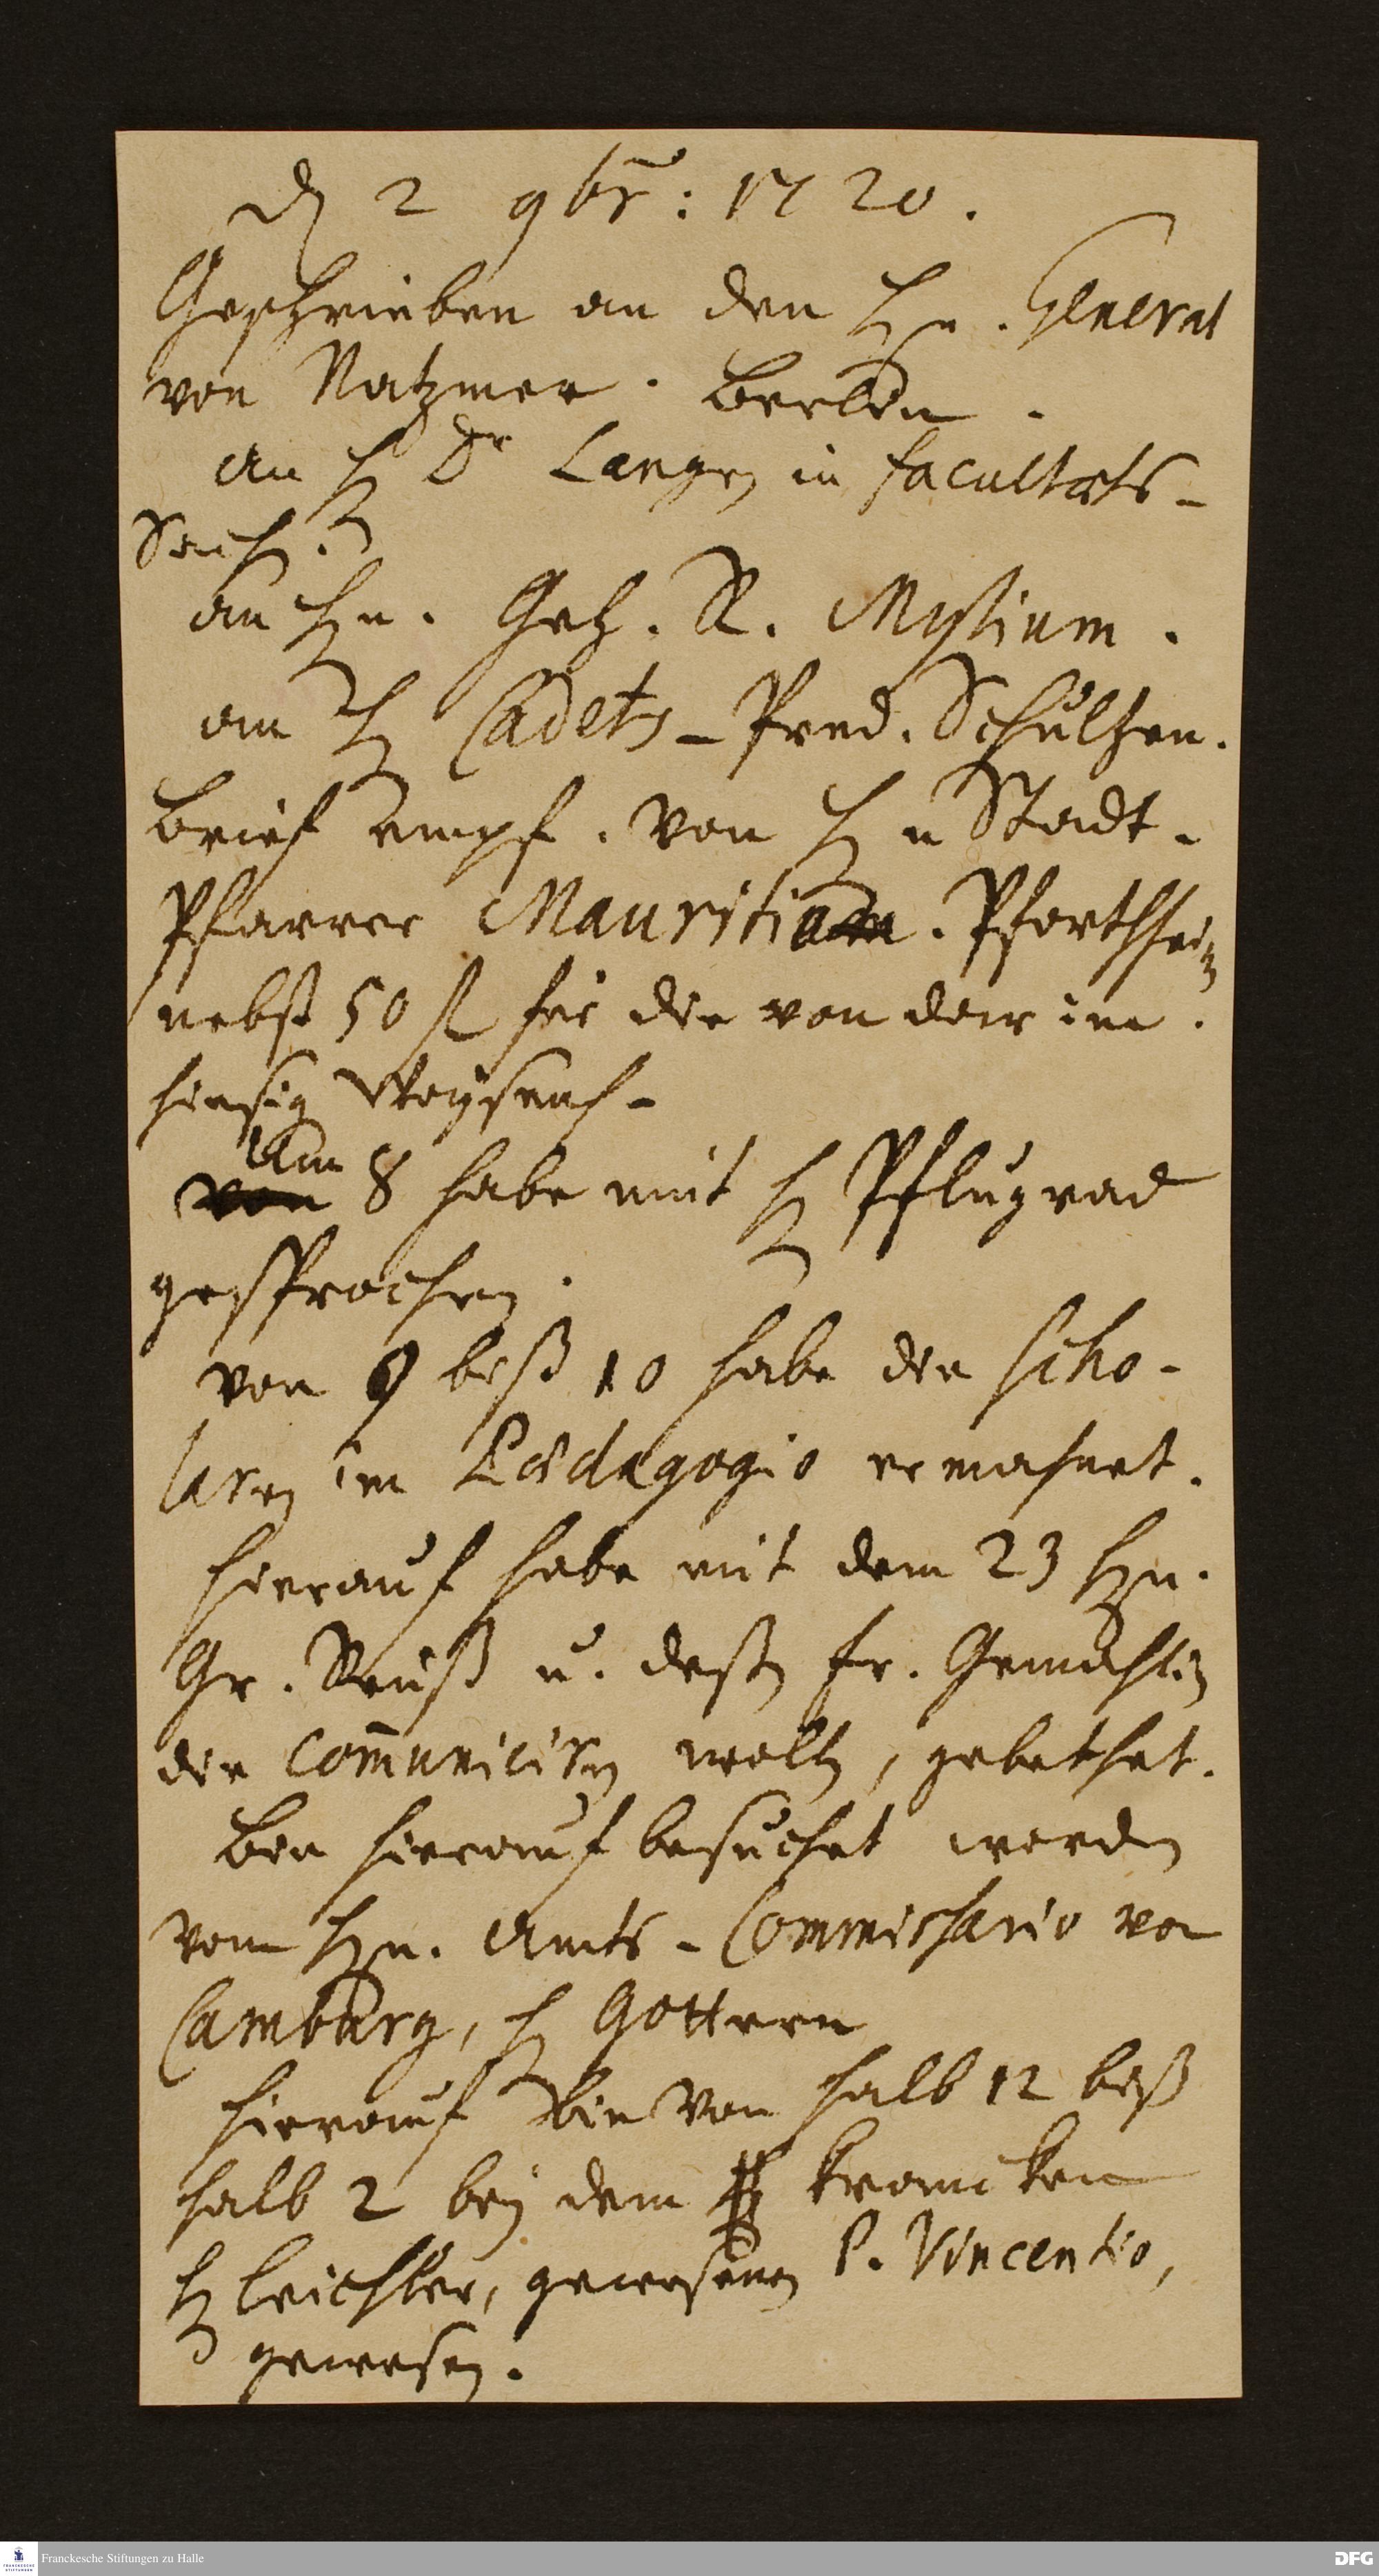 d. 2 9br: 1720.
Geschrieben an den Hn. General
von Natzmer. Berlin.
an H. Dr Langen in facultæts-
Sach.
an Hn. Geh. R. Mylium.
an H. Cadets-Pred. Schultzen.
Brief empf. von Hn Stadt-
Pfarrer Mauritio. Pfortzheim
nebst 50 fl für die von dar im
hiesig Waysenh-
Um 8 habe mit H. Pflugrad
gesprochen.
von 9 biß 10 habe die scho-
laren im Pædagogio ermahnet.
hierauf habe mit dem 23 Hn.
Gr. Reuß u. deßen Fr. Gemahlin
die com̄uniciren wollen, gebethet.
Bin hierauf besuchet worden
vom Hn. Amts-Commissario von
Camburg, H. Gottern
hierauf bin von halb 12 biß
halb 2 bey dem krancken
H. Leichter, gewesenen P. Vincentio,
gewesen.
Franckesche Stiftungen zu Halle
DFG